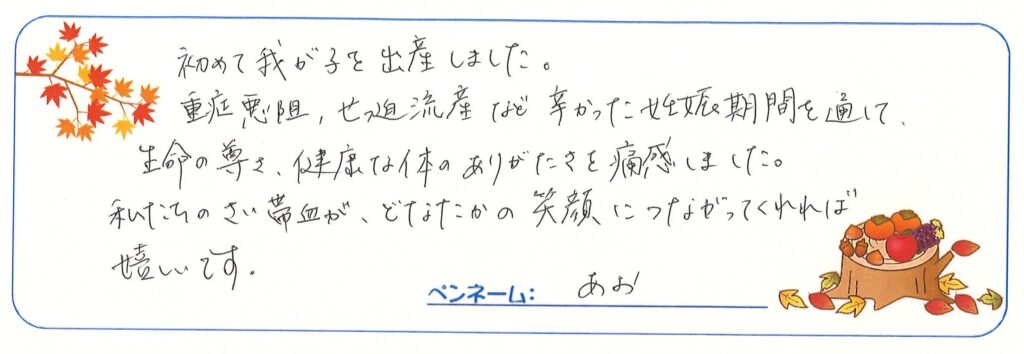 初めて我が子を出産しました。
重症悪阻，せっ迫流産など辛かった妊娠期間を通して、
生命の尊さ、健康な体のありがたさを痛感しました。
私たちのさい帯血が、どなたかの笑顔につながってくれれば
嬉しいです。
ペンネーム： あお